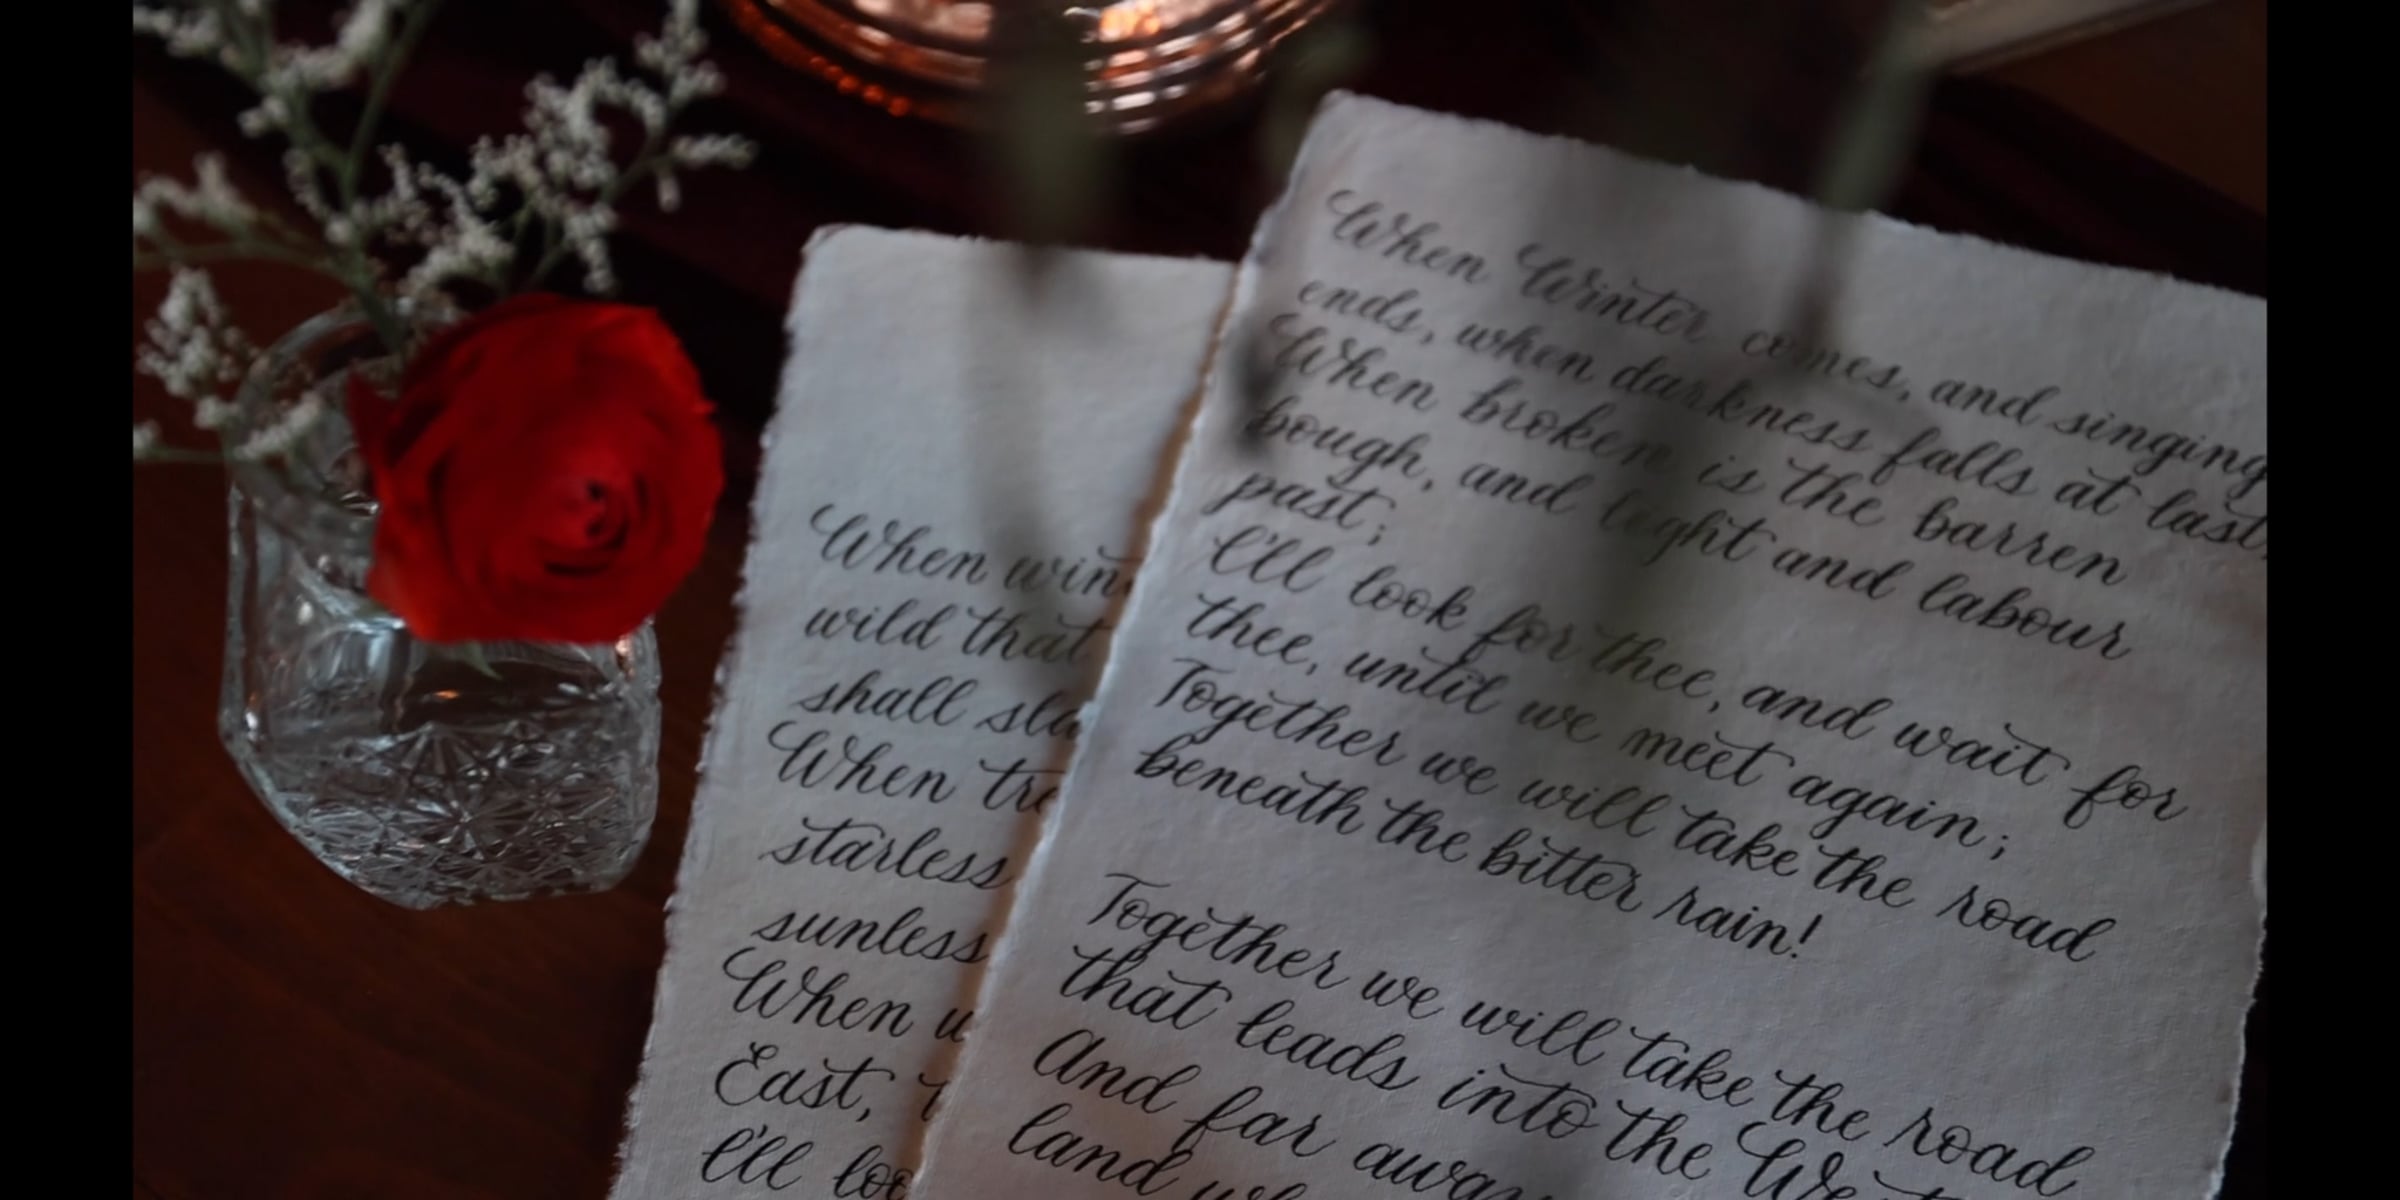 When
wild that
shall
When
starless
sunless
When
East,
I'll
When Winter comes, and singing
ends, when darkness falls at last;
When broken is the barren
bough, and light and labour
past;
I'll look for thee, and wait for
thee, until we meet again;
Together we will take the road
beneath the bitter rain!
Together we will take the road
that leads into the
And far
land